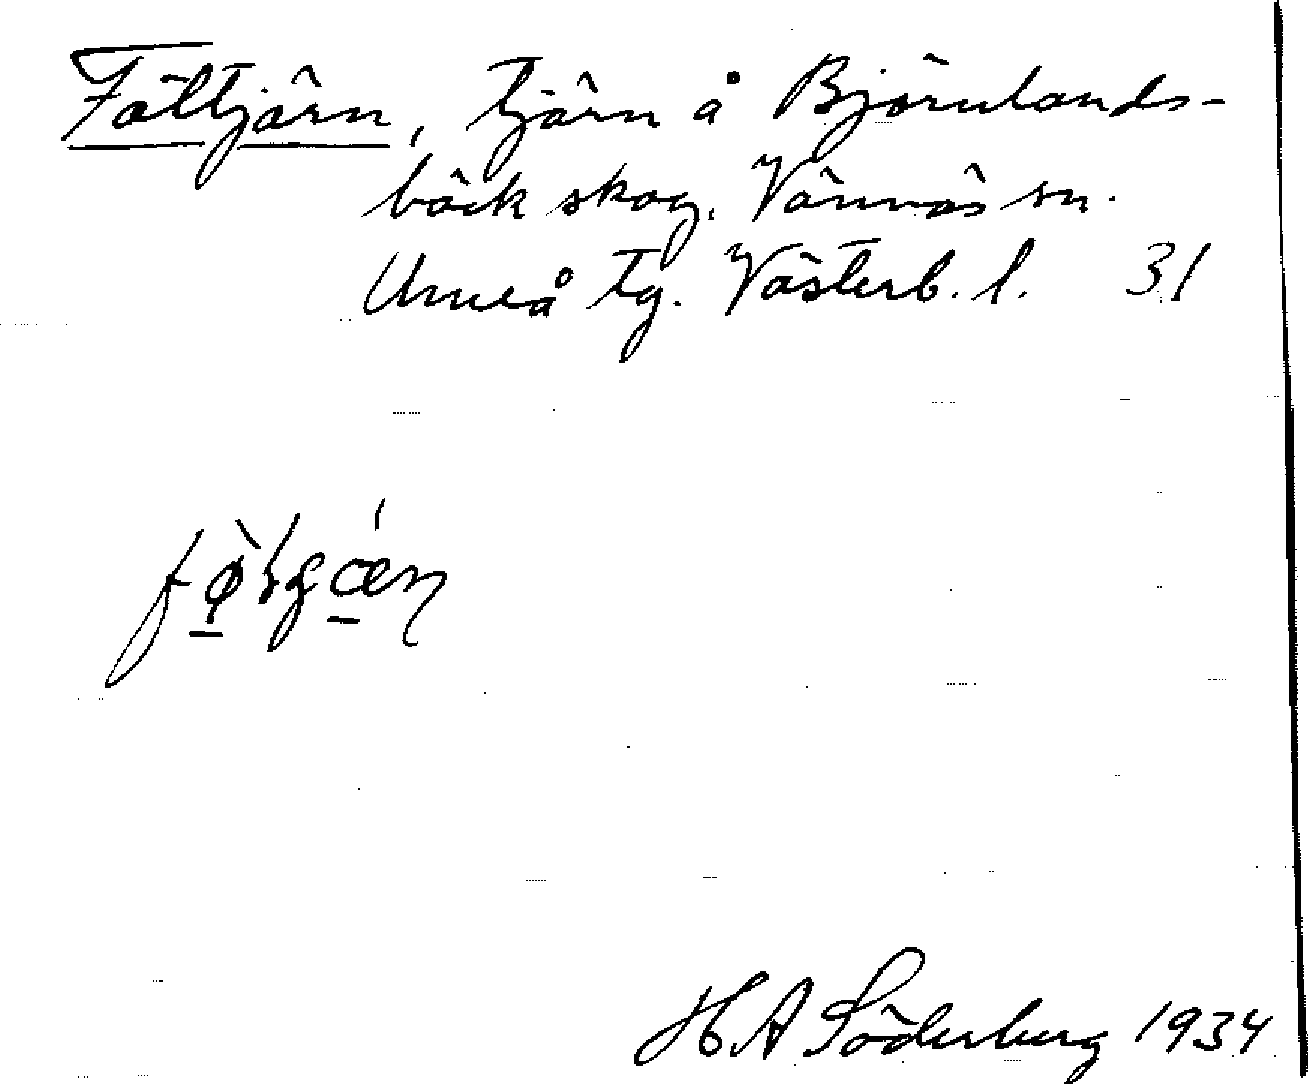 Föltjärn, tjärn å Björnlands-
bäck skog. Vännäs sn.
Umeå tg. Västerb. l. 31
H A Söderberg 1934